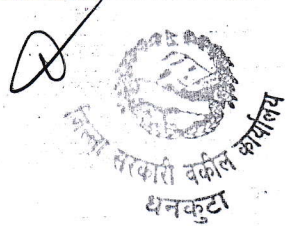 जिल्ला सरकारी वकील कार्यालय
धनकुटा